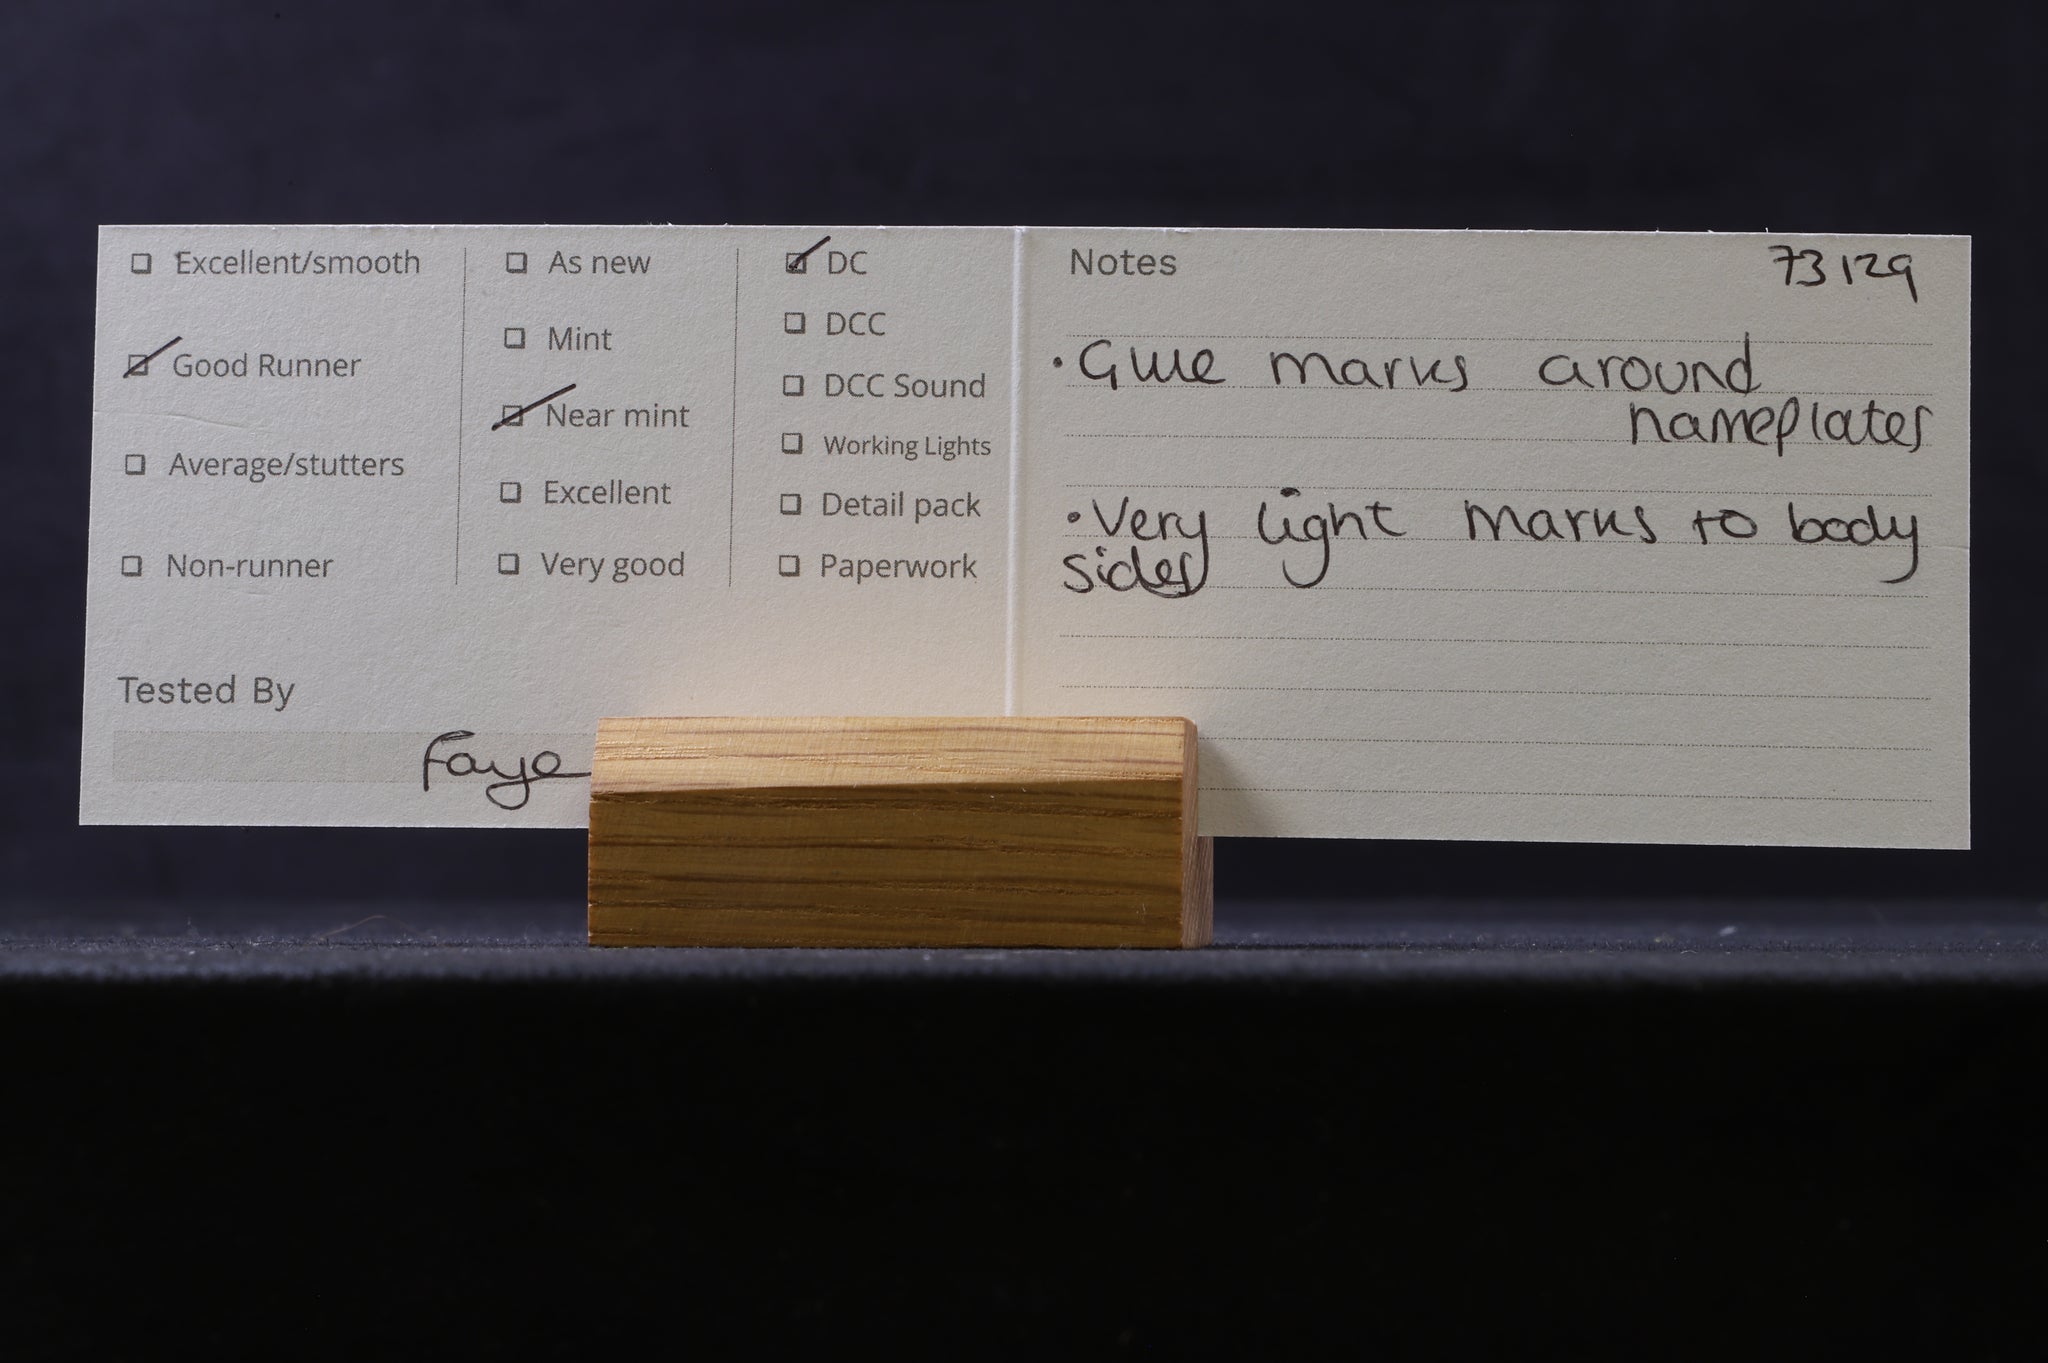 ☐ Excellent/smooth
☑ Good Runner
☐ Average/stutters
☐ Non-runner
☐ As new
☐ Mint
☑ Near mint
☐ Excellent
☐ Very good
☑ DC
☐ DCC
☐ DCC Sound
☐ Working Lights
☐ Detail pack
☐ Paperwork
Tested By
Faye
Notes
73129
• Glue marks around
nameplates
• Very light marks to body
sides